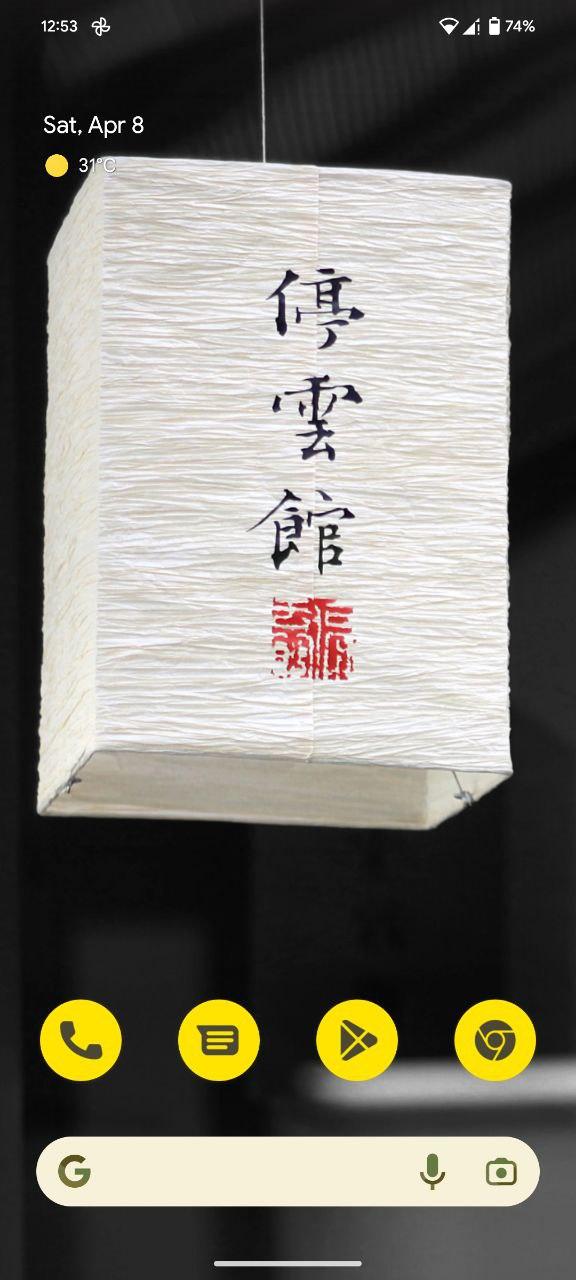 12:53
74%
Sat, Apr 8
31°C
停雲館